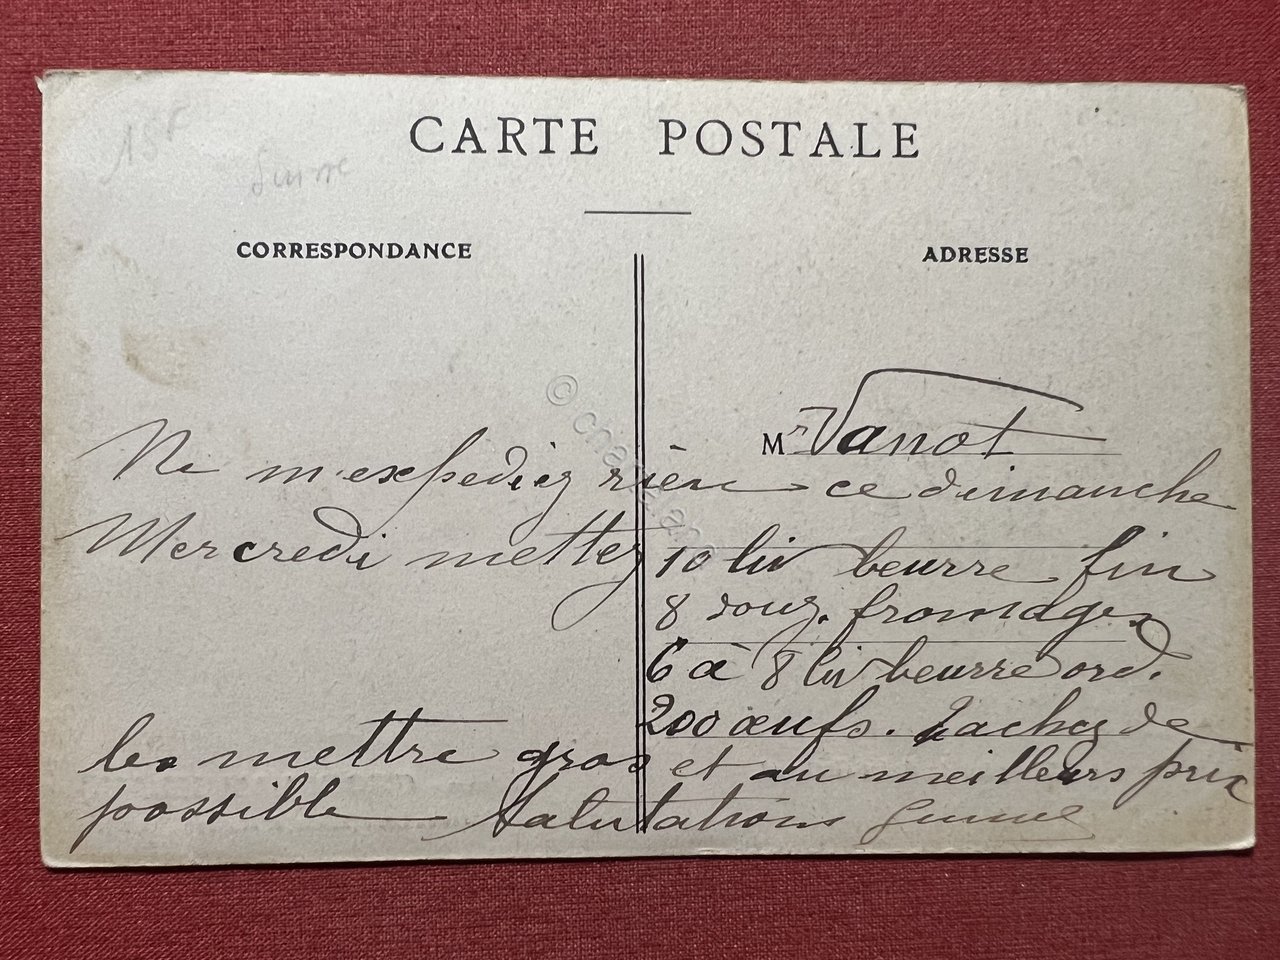 CARTE POSTALE
15F
CORRESPONDANCE
ADRESSE
Mr Vanot
Ne m'expediez rien ce dimanche
Mercredi mettez 10 liv beurre fin
8 douz. fromages
6 à 8 liv beurre ord.
200 œufs. Tachez de
les mettre gros et au meilleurs prix
possible Salutations